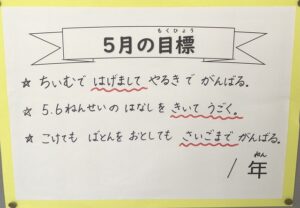 5月の目標
もくひょう
☆ ちいむで はげまして やるきで がんばる。
☆ 5.6ねんせいの はなしを きいて うごく。
☆ こけても ばとんを おとしても さいごまで がんばる。
1年
ねん